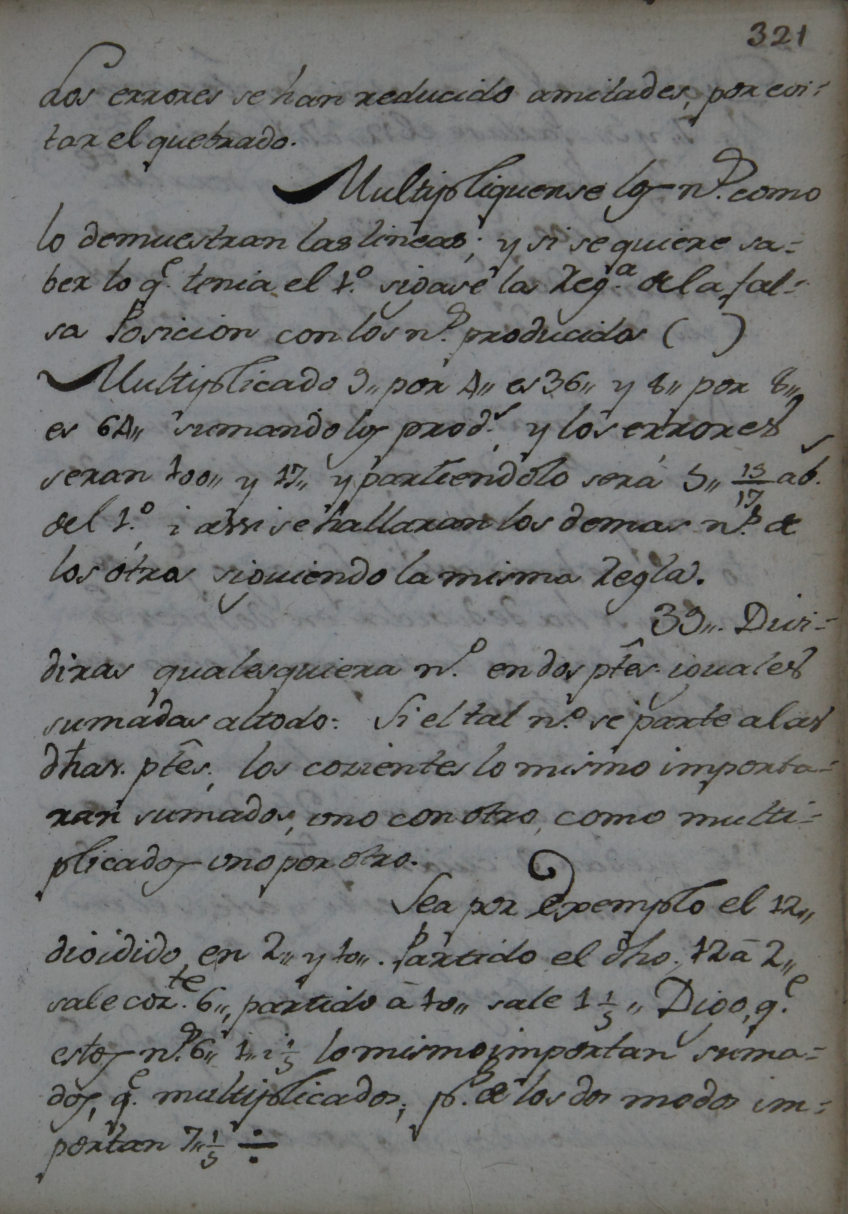 321
Los errores se han reducido amitades, por evi-
tar el quebrado.
Multipliquense los n.os como
lo demuestran las lineas; y si se quiere sa-
ber lo q.e tenia el 1.o sigase la Reg.a de la fal-
sa Posicion con los n.os producidos ( )
Multiplicado 9,, por 4,, es 36,, y 8,, por 8,,
es 64,, sumando los prod.s y los errores
seran 100,, y 17,, y partiendolo será 5,, 15/17 ab.s
del 1.o, i assi se hallaran los demas n.os de
los otros siguiendo la misma Regla.
39,,. Divi-
diras qualesquiera n.o en dos ptes. iguales
sumadas al todo: Si el tal n.o se parte a las
dhas. ptes; los cozientes lo mismo importa-
ran sumados, uno con otro, como multi-
plicados uno por otro.
Sea por Exemplo el 12,,
dividido en 2,, y 10,,. Partido el dho. 12 â 2,,
sale coz.te 6,,, partido â 10,, sale 1 1/5,, Digo, q.e
estos n.os 6,, 1,, i 1/5 lo mismo importan suma-
dos, q.e multiplicados; p.s de los dos modos im-
portan 7,, 1/5 ÷